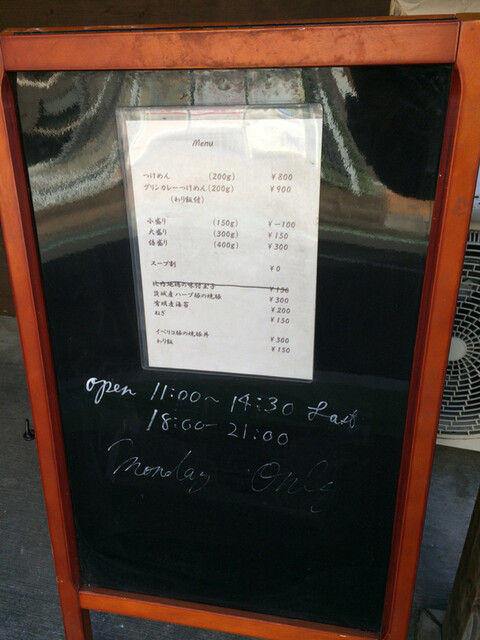 Menu
つけめん (200g) ¥800
グリンカレーつけめん(200g) ¥900
(わり飯付)
小盛り (150g) ¥-100
大盛り (300g) ¥150
倍盛り (400g) ¥300
スープ割 ¥0
比内地鶏の味付玉子 ¥150
茨城産ハーブ豚の焼豚 ¥300
有明産海苔 ¥200
ねぎ ¥150
イベリコ豚の焼豚丼 ¥300
わり飯 ¥150
open 11:00~14:30 Last
18:00-21:00
Monday Only